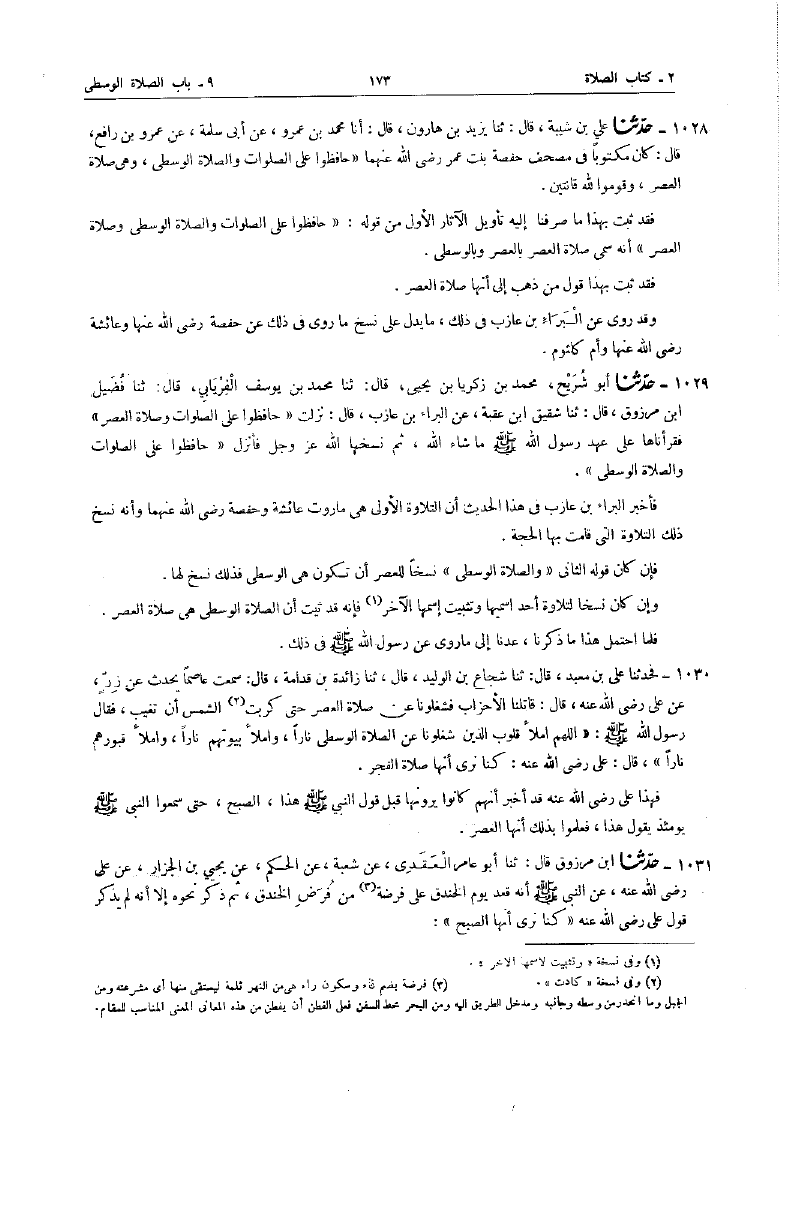 ٢ ـ كتاب الصلاة ١٧٣ ٩ ـ باب الصلاة الوسطى
١٠٢٨ ـ حدّثنا علي بن شيبة ، قال : ثنا يزيد بن هارون ، قال : أنا محمد بن عمرو ، عن أبى سلمة ، عن عمرو بن رافع ،
قال : كان مكتوباً فى مصحف حفصة بنت عمر رضى الله عنهما «حافظوا على الصلوات والصلاة الوسطى ، وهى صلاة
العصر ، وقوموا لله قانتين .
فقد ثبت بهذا ما صرفنا إليه تأويل الآثار الأول من قوله : « حافظوا على الصلوات والصلاة الوسطى وصلاة
العصر » أنه سمى صلاة العصر بالعصر وبالوسطى .
فقد ثبت بهذا قول من ذهب إلى أنها صلاة العصر .
وقد روى عن الْبَرَاء بن عازب فى ذلك ، مايدل على نسخ ما روى فى ذلك عن حفصة رضى الله عنها وعائشة
رضى الله عنها وأم كلثوم .
١٠٢٩ ـ حدّثنا أبو شُرَيْح، محمد بن زكريا بن يحيى، قال: ثنا محمد بن يوسف الْفِرْيَابي، قال: ثنا فُضَيل
ابن مرزوق ، قال : ثنا شقيق ابن عقبة ، عن البراء بن عازب ، قال : نزلت « حافظوا على الصلوات وصلاة العصر »
فقرأناها على عهد رسول الله ﷺ ما شاء الله ، ثم نسخها الله عز وجل فأنزل « حافظوا على الصلوات
والصلاة الوسطى » .
فأخبر البراء بن عازب فى هذا الحديث أن التلاوة الأولى هى ماروت عائشة وحفصة رضى الله عنهما وأنه نسخ
ذلك التلاوة التى قامت بها الحجة .
فإن كان قوله الثانى « والصلاة الوسطى » نسخاً للعصر أن تكون هى الوسطى فذلك نسخ لها .
وإن كان نسخا لتلاوة أحد اسميها وتثبيت إسمها الآخر(١) فإنه قد ثبت أن الصلاة الوسطى هى صلاة العصر .
فلما احتمل هذا ما ذكرنا ، عدنا إلى ماروى عن رسول الله ﷺ فى ذلك .
١٠٣٠ ـ فحدثنا على بن معبد ، قال: ثنا شجاع بن الوليد ، قال ، ثنا زائدة بن قدامة ، قال: سمعت عاصماً يحدث عن زِرّ ،
عن على رضى الله عنه ، قال : قاتلنا الأحزاب فشغلونا عن صلاة العصر حتى كربت(٢) الشمس أن تغيب ، فقال
رسول الله ﷺ : « اللهم املأ قلوب الذين شغلونا عن الصلاة الوسطى ناراً ، واملأ بيوتهم ناراً ، واملأ قبورهم
ناراً » ، قال : على رضى الله عنه : كنا نرى أنها صلاة الفجر .
فهذا على رضى الله عنه قد أخبر أنهم كانوا يرونها قبل قول النبي ﷺ هذا ، الصبح ، حتى سمعوا النبي ﷺ
يومئذ يقول هذا ، فعلموا بذلك أنها العصر .
١٠٣١ ـ حدّثنا ابن مرزوق قال : ثنا أبو عامر الْعَقَدى ، عن شعبة ، عن الحكم ، عن يحيي بن الجزار ، عن على
رضى الله عنه ، عن النبي ﷺ أنه قعد يوم الخندق على فرضة(٣) من فُرَضِ الخندق ، ثم ذكر نحوه إلا أنه لم يذكر
قول على رضى الله عنه «كنا نرى أنها الصبح » :
(١) وفى نسخة « وتثبيت لاسمها الآخر » .
(٢) وفى نسخة « كادت » . (٣) فرضة بضم فاء وسكون راء هى من النهر ثلمة ليستقى منها أى مشرعته ومن
الجبل وما انحدر من وسطه وجانبه ومدخل الطريق اليه ومن البحر محط السفن فعلى الفطن أن يفطن من هذه المعانى المعنى المناسب للمقام.